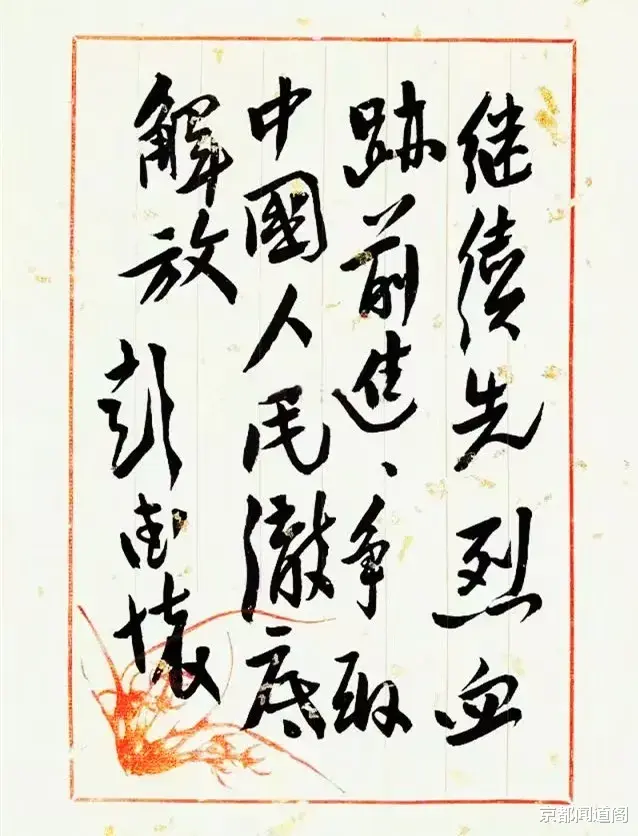 继续先烈血
跡前進、争取
中國人民澈底
解放 彭德懷
京都闻道阁